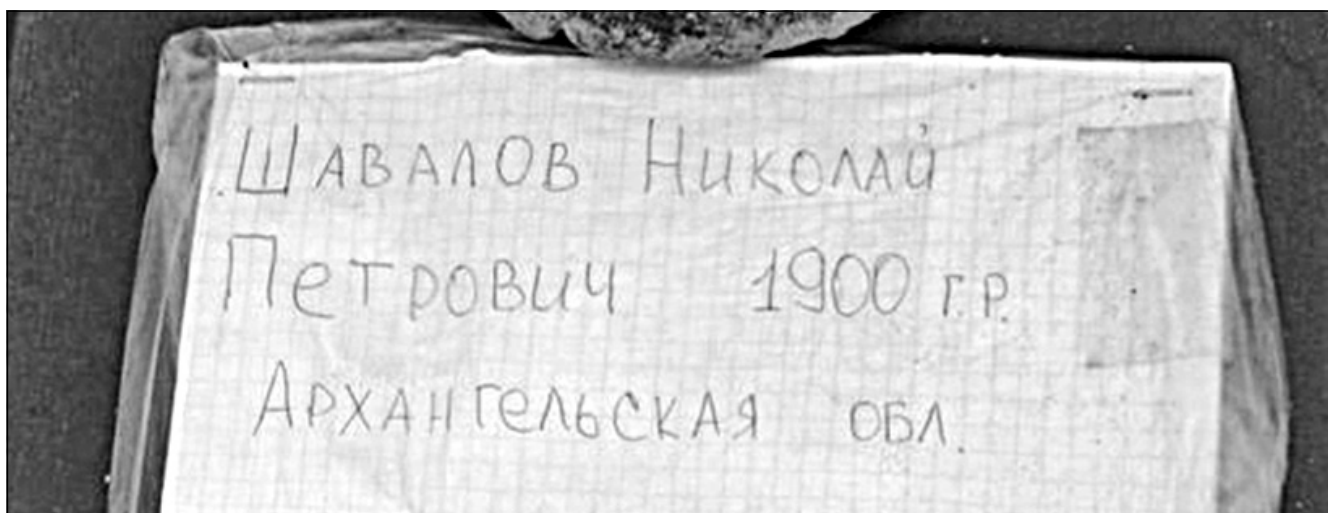 Шавалов Николай
Петрович 1900 г.р.
Архангельская обл.